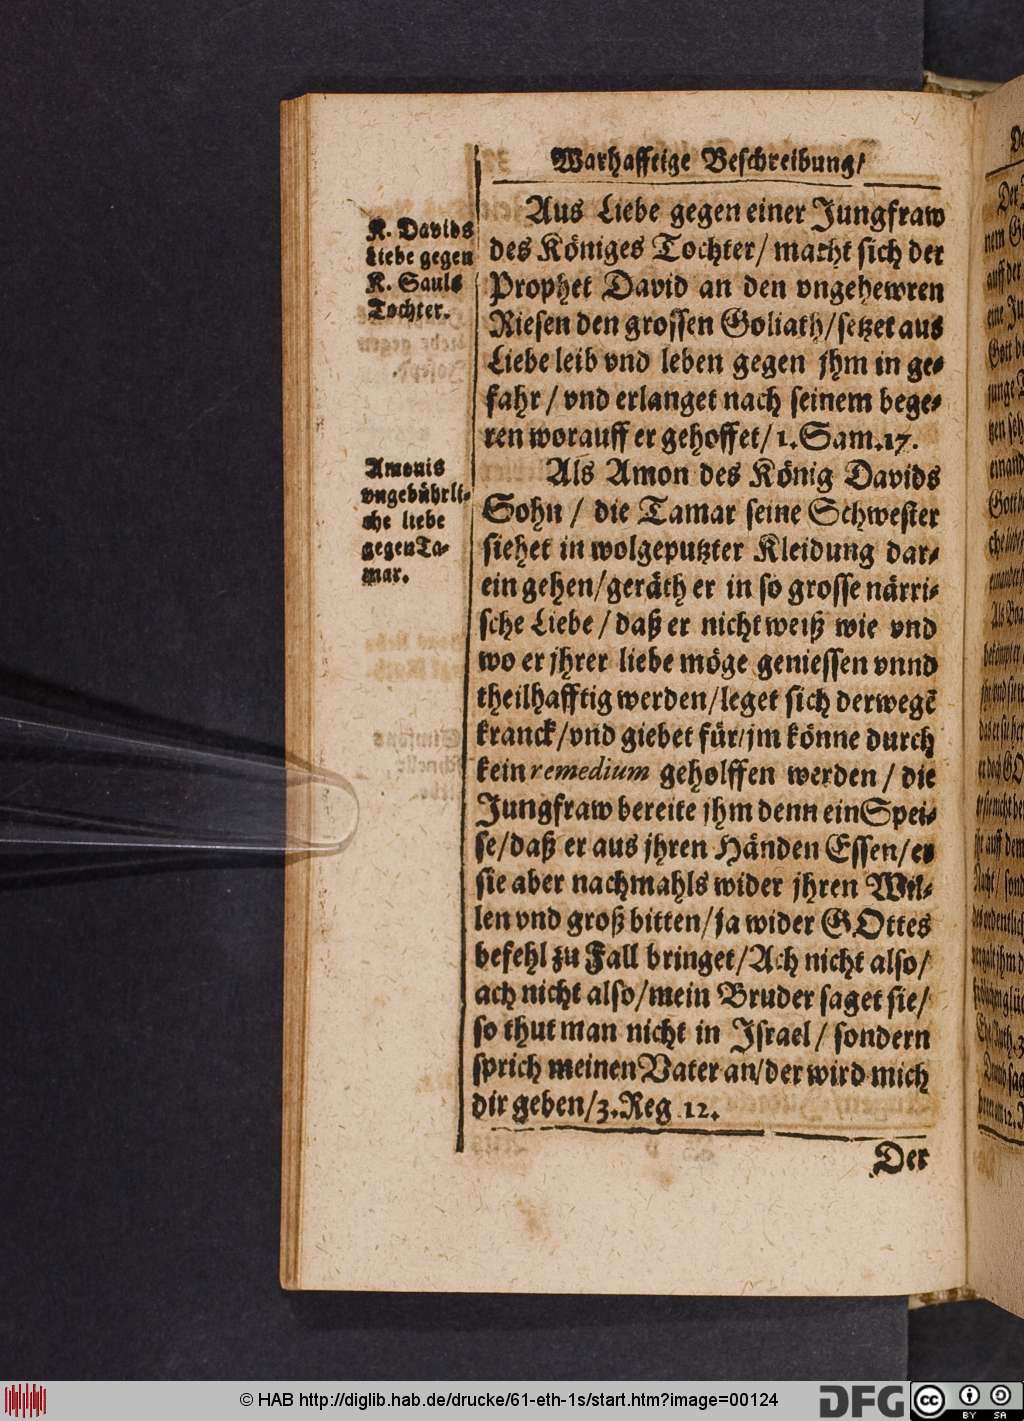 Warhafftige Beschreibung/
K. Davids
Liebe gegen
K. Sauls
Tochter.
Aus Liebe gegen einer Jungfraw
des Königes Tochter/ macht sich der
Prophet David an den vngehewren
Riesen den grossen Goliath/setzet aus
Liebe leib vnd leben gegen jhm in ge-
fahr / vnd erlanget nach seinem bege-
ren worauff er gehoffet/ 1. Sam. 17.
Amonis
vngebührli-
che liebe
gegen Ta-
mar.
Als Amon des König Davids
Sohn / die Tamar seine Schwester
siehet in wolgeputzter Kleidung dar-
ein gehen/geräth er in so grosse närri-
sche Liebe / daß er nicht weiß wie vnd
wo er jhrer liebe möge geniessen vnnd
theilhafftig werden/leget sich derwegẽ
kranck/vnd giebet für/jm könne durch
kein remedium geholffen werden / die
Jungfraw bereite jhm denn ein Spei-
se/daß er aus jhren Händen Essen/er
sie aber nachmahls wider jhren Wil-
len vnd groß bitten/ja wider GOttes
befehl zu Fall bringet/Ach nicht also/
ach nicht also/mein Bruder saget sie/
so thut man nicht in Israel / sondern
sprich meinen Vater an/der wird mich
dir geben/3. Reg 12.
Der
© HAB http://diglib.hab.de/drucke/61-eth-1s/start.htm?image=00124
DFG
cc
BY SA